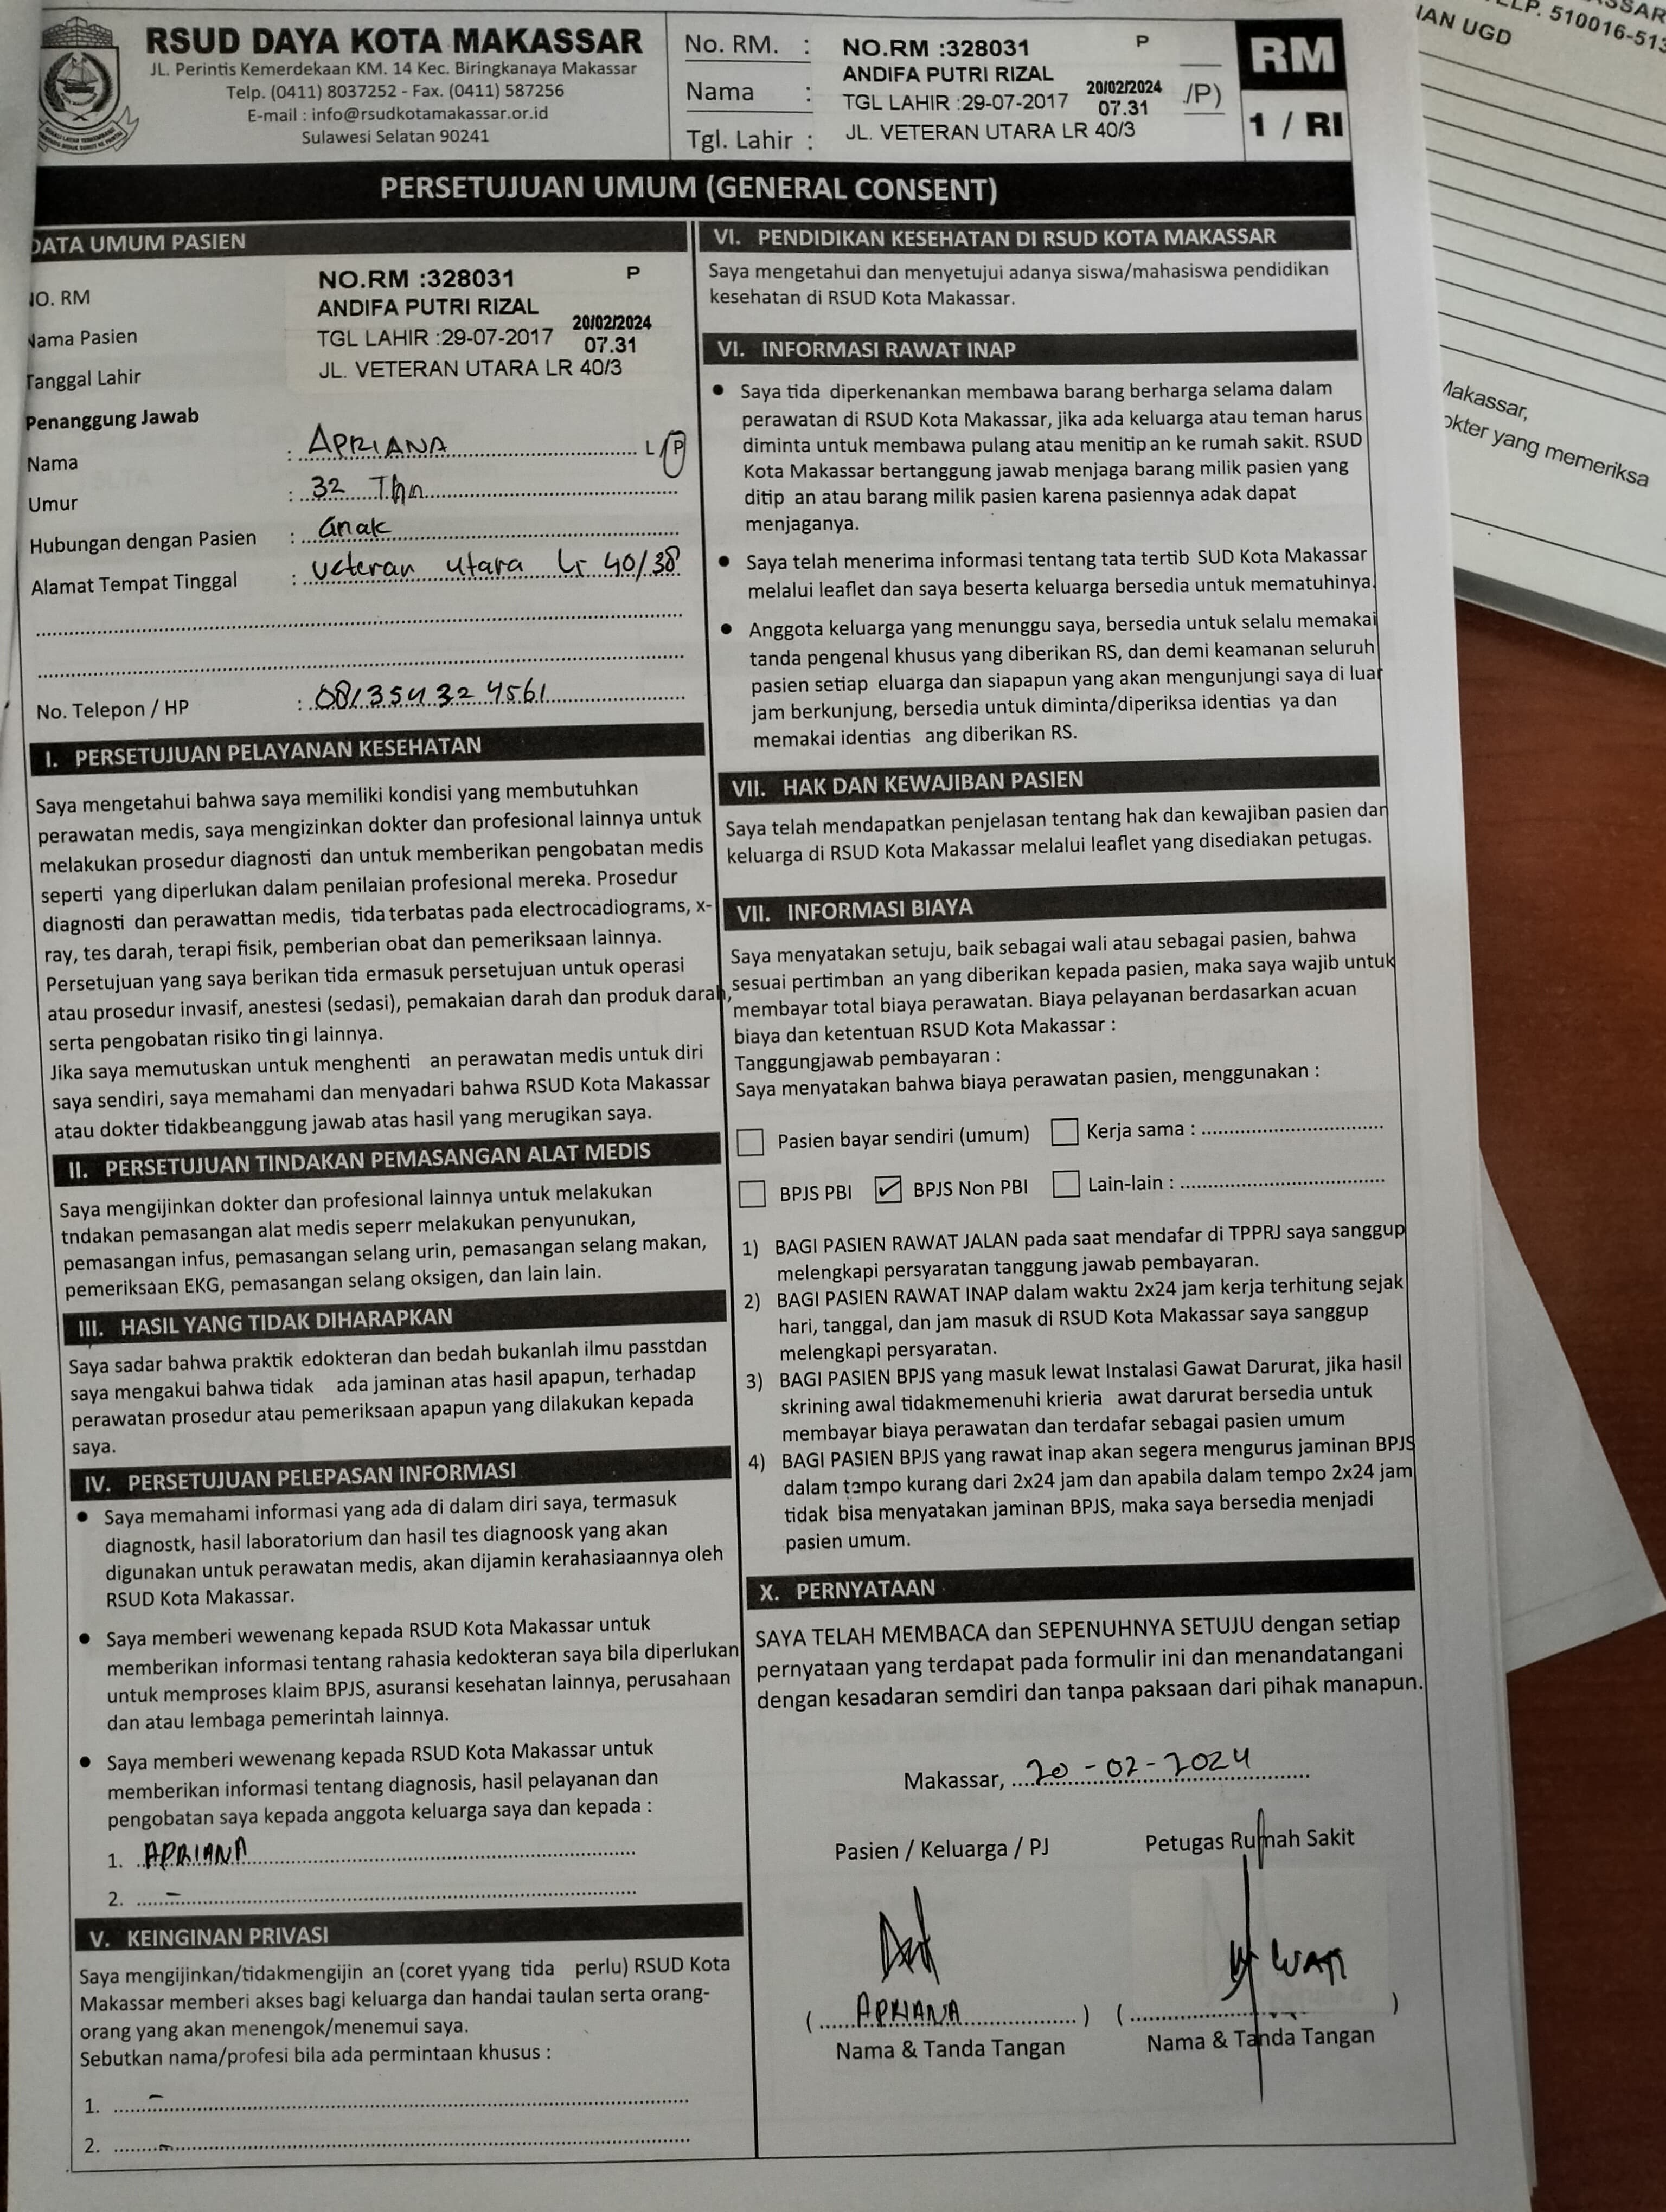 RSUD DAYA KOTA MAKASSAR
JL. Perintis Kemerdekaan KM. 14 Kec. Biringkanaya Makassar
Telp. (0411) 8037252 - Fax. (0411) 587256
E-mail : info@rsudkotamakassar.or.id
Sulawesi Selatan 90241
No. RM. :
Nama :
Tgl. Lahir :
NO.RM :328031 P
ANDIFA PUTRI RIZAL
TGL LAHIR :29-07-2017 20/02/2024 07.31
JL. VETERAN UTARA LR 40/3
/P)
RM
1 / RI
PERSETUJUAN UMUM (GENERAL CONSENT)
DATA UMUM PASIEN
NO. RM
Nama Pasien
Tanggal Lahir
NO.RM :328031 P
ANDIFA PUTRI RIZAL
TGL LAHIR :29-07-2017 20/02/2024 07.31
JL. VETERAN UTARA LR 40/3
Penanggung Jawab
Nama : APRIANA L/P
Umur : 32 Thn
Hubungan dengan Pasien : anak
Alamat Tempat Tinggal : veteran utara Lr 40/38
No. Telepon / HP : 081354324561
I. PERSETUJUAN PELAYANAN KESEHATAN
Saya mengetahui bahwa saya memiliki kondisi yang membutuhkan
perawatan medis, saya mengizinkan dokter dan profesional lainnya untuk
melakukan prosedur diagnosti dan untuk memberikan pengobatan medis
seperti yang diperlukan dalam penilaian profesional mereka. Prosedur
diagnosti dan perawattan medis, tida terbatas pada electrocadiograms, x-
ray, tes darah, terapi fisik, pemberian obat dan pemeriksaan lainnya.
Persetujuan yang saya berikan tida ermasuk persetujuan untuk operasi
atau prosedur invasif, anestesi (sedasi), pemakaian darah dan produk darah,
serta pengobatan risiko tin gi lainnya.
Jika saya memutuskan untuk menghenti an perawatan medis untuk diri
saya sendiri, saya memahami dan menyadari bahwa RSUD Kota Makassar
atau dokter tidakbeanggung jawab atas hasil yang merugikan saya.
II. PERSETUJUAN TINDAKAN PEMASANGAN ALAT MEDIS
Saya mengijinkan dokter dan profesional lainnya untuk melakukan
tndakan pemasangan alat medis seperr melakukan penyunukan,
pemasangan infus, pemasangan selang urin, pemasangan selang makan,
pemeriksaan EKG, pemasangan selang oksigen, dan lain lain.
III. HASIL YANG TIDAK DIHARAPKAN
Saya sadar bahwa praktik edokteran dan bedah bukanlah ilmu passtdan
saya mengakui bahwa tidak ada jaminan atas hasil apapun, terhadap
perawatan prosedur atau pemeriksaan apapun yang dilakukan kepada
saya.
IV. PERSETUJUAN PELEPASAN INFORMASI
• Saya memahami informasi yang ada di dalam diri saya, termasuk
diagnostk, hasil laboratorium dan hasil tes diagnoosk yang akan
digunakan untuk perawatan medis, akan dijamin kerahasiaannya oleh
RSUD Kota Makassar.
• Saya memberi wewenang kepada RSUD Kota Makassar untuk
memberikan informasi tentang rahasia kedokteran saya bila diperlukan
untuk memproses klaim BPJS, asuransi kesehatan lainnya, perusahaan
dan atau lembaga pemerintah lainnya.
• Saya memberi wewenang kepada RSUD Kota Makassar untuk
memberikan informasi tentang diagnosis, hasil pelayanan dan
pengobatan saya kepada anggota keluarga saya dan kepada :
1. APRIANA
2. -
V. KEINGINAN PRIVASI
Saya mengijinkan/tidakmengijin an (coret yyang tida perlu) RSUD Kota
Makassar memberi akses bagi keluarga dan handai taulan serta orang-
orang yang akan menengok/menemui saya.
Sebutkan nama/profesi bila ada permintaan khusus :
1. -
2. -
VI. PENDIDIKAN KESEHATAN DI RSUD KOTA MAKASSAR
Saya mengetahui dan menyetujui adanya siswa/mahasiswa pendidikan
kesehatan di RSUD Kota Makassar.
VI. INFORMASI RAWAT INAP
• Saya tida diperkenankan membawa barang berharga selama dalam
perawatan di RSUD Kota Makassar, jika ada keluarga atau teman harus
diminta untuk membawa pulang atau menitip an ke rumah sakit. RSUD
Kota Makassar bertanggung jawab menjaga barang milik pasien yang
ditip an atau barang milik pasien karena pasiennya adak dapat
menjaganya.
• Saya telah menerima informasi tentang tata tertib SUD Kota Makassar
melalui leaflet dan saya beserta keluarga bersedia untuk mematuhinya.
• Anggota keluarga yang menunggu saya, bersedia untuk selalu memakai
tanda pengenal khusus yang diberikan RS, dan demi keamanan seluruh
pasien setiap eluarga dan siapapun yang akan mengunjungi saya di luar
jam berkunjung, bersedia untuk diminta/diperiksa identias ya dan
memakai identias ang diberikan RS.
VII. HAK DAN KEWAJIBAN PASIEN
Saya telah mendapatkan penjelasan tentang hak dan kewajiban pasien dan
keluarga di RSUD Kota Makassar melalui leaflet yang disediakan petugas.
VII. INFORMASI BIAYA
Saya menyatakan setuju, baik sebagai wali atau sebagai pasien, bahwa
sesuai pertimban an yang diberikan kepada pasien, maka saya wajib untuk
membayar total biaya perawatan. Biaya pelayanan berdasarkan acuan
biaya dan ketentuan RSUD Kota Makassar :
Tanggungjawab pembayaran :
Saya menyatakan bahwa biaya perawatan pasien, menggunakan :
☐ Pasien bayar sendiri (umum) ☐ Kerja sama :
☐ BPJS PBI ☑ BPJS Non PBI ☐ Lain-lain :
1) BAGI PASIEN RAWAT JALAN pada saat mendafar di TPPRJ saya sanggup
melengkapi persyaratan tanggung jawab pembayaran.
2) BAGI PASIEN RAWAT INAP dalam waktu 2x24 jam kerja terhitung sejak
hari, tanggal, dan jam masuk di RSUD Kota Makassar saya sanggup
melengkapi persyaratan.
3) BAGI PASIEN BPJS yang masuk lewat Instalasi Gawat Darurat, jika hasil
skrining awal tidakmemenuhi krieria awat darurat bersedia untuk
membayar biaya perawatan dan terdafar sebagai pasien umum
4) BAGI PASIEN BPJS yang rawat inap akan segera mengurus jaminan BPJS
dalam tempo kurang dari 2x24 jam dan apabila dalam tempo 2x24 jam
tidak bisa menyatakan jaminan BPJS, maka saya bersedia menjadi
pasien umum.
X. PERNYATAAN
SAYA TELAH MEMBACA dan SEPENUHNYA SETUJU dengan setiap
pernyataan yang terdapat pada formulir ini dan menandatangani
dengan kesadaran semdiri dan tanpa paksaan dari pihak manapun.
Makassar, 20-02-2024
Pasien / Keluarga / PJ
Petugas Rumah Sakit
WATI
( APRIANA ) ( )
Nama & Tanda Tangan
Nama & Tanda Tangan
510016-513
UGD
Makassar,
yang memeriksa